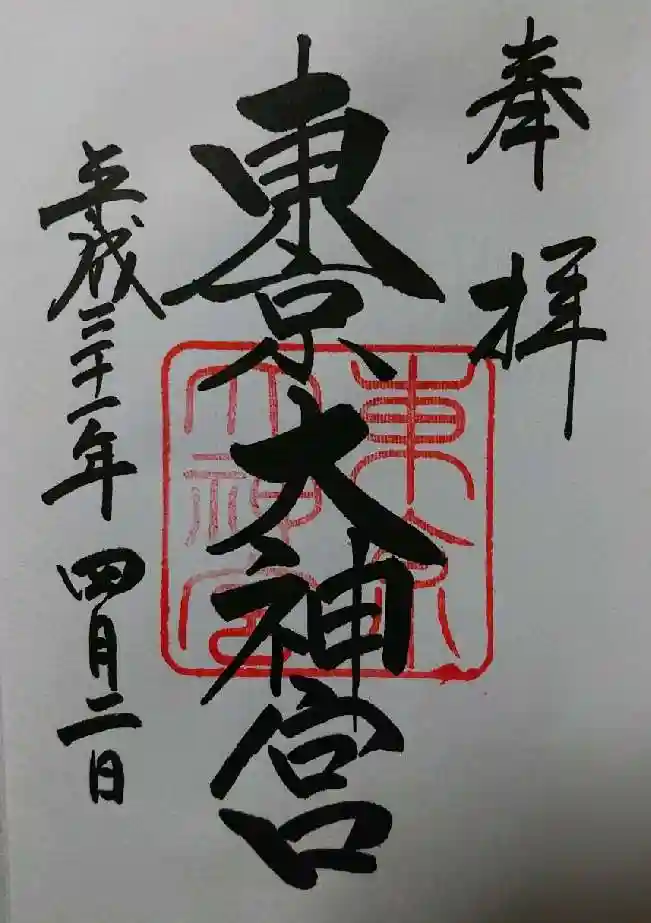 奉拝
東京大神宮
平成三十一年四月二日
東京
大神宮